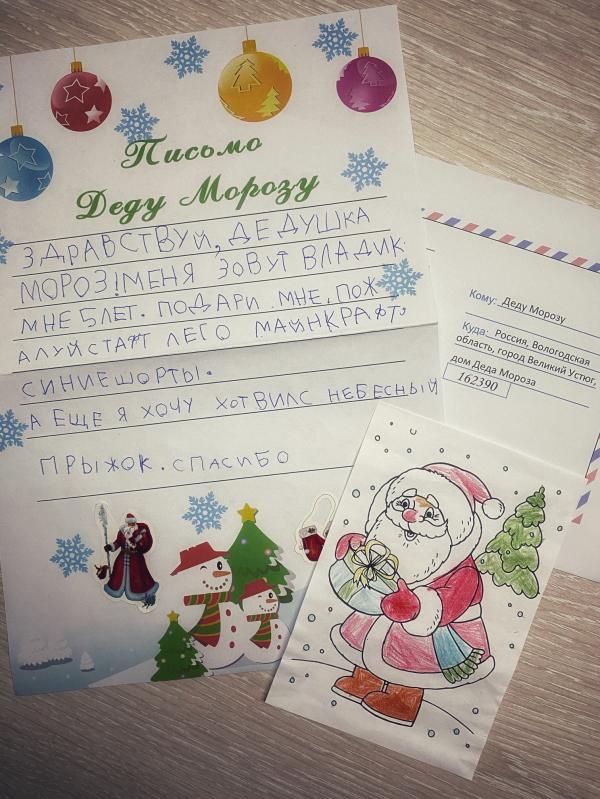 Письмо
Деду Морозу
ЗДРАВСТВУЙ, ДЕДУШКА
МОРОЗ! МЕНЯ ЗОВУТ ВЛАДИК.
МНЕ 5 ЛЕТ. ПОДАРИ МНЕ, ПОЖ-
АЛУЙСТАТ ЛЕГО МАЙНКРАФТ.
СИНИЕ ШОРТЫ.
А ЕЩЕ Я ХОЧУ ХОТ ВИЛС НЕБЕСНЫЙ
ПРЫЖОК. СПАСИБО
Кому: Деду Морозу
Куда: Россия, Вологодская
область, город Великий Устюг,
дом Деда Мороза
162390